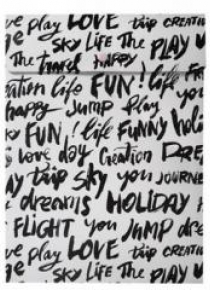 ve play LOVE trip CREATIV
SKY LIFE The PLAY
The travel HAPPY
ation life FUN! life FR
happy Jump Play you
KY FUN! life FUNNY holi
Love day Creation DRE
AY trip SKY you JOURNE
dreams HOLIDAY
FLIGHT you JUMP dre
ve play LOVE trip CREATI
ge SKY LIFE The PLAY